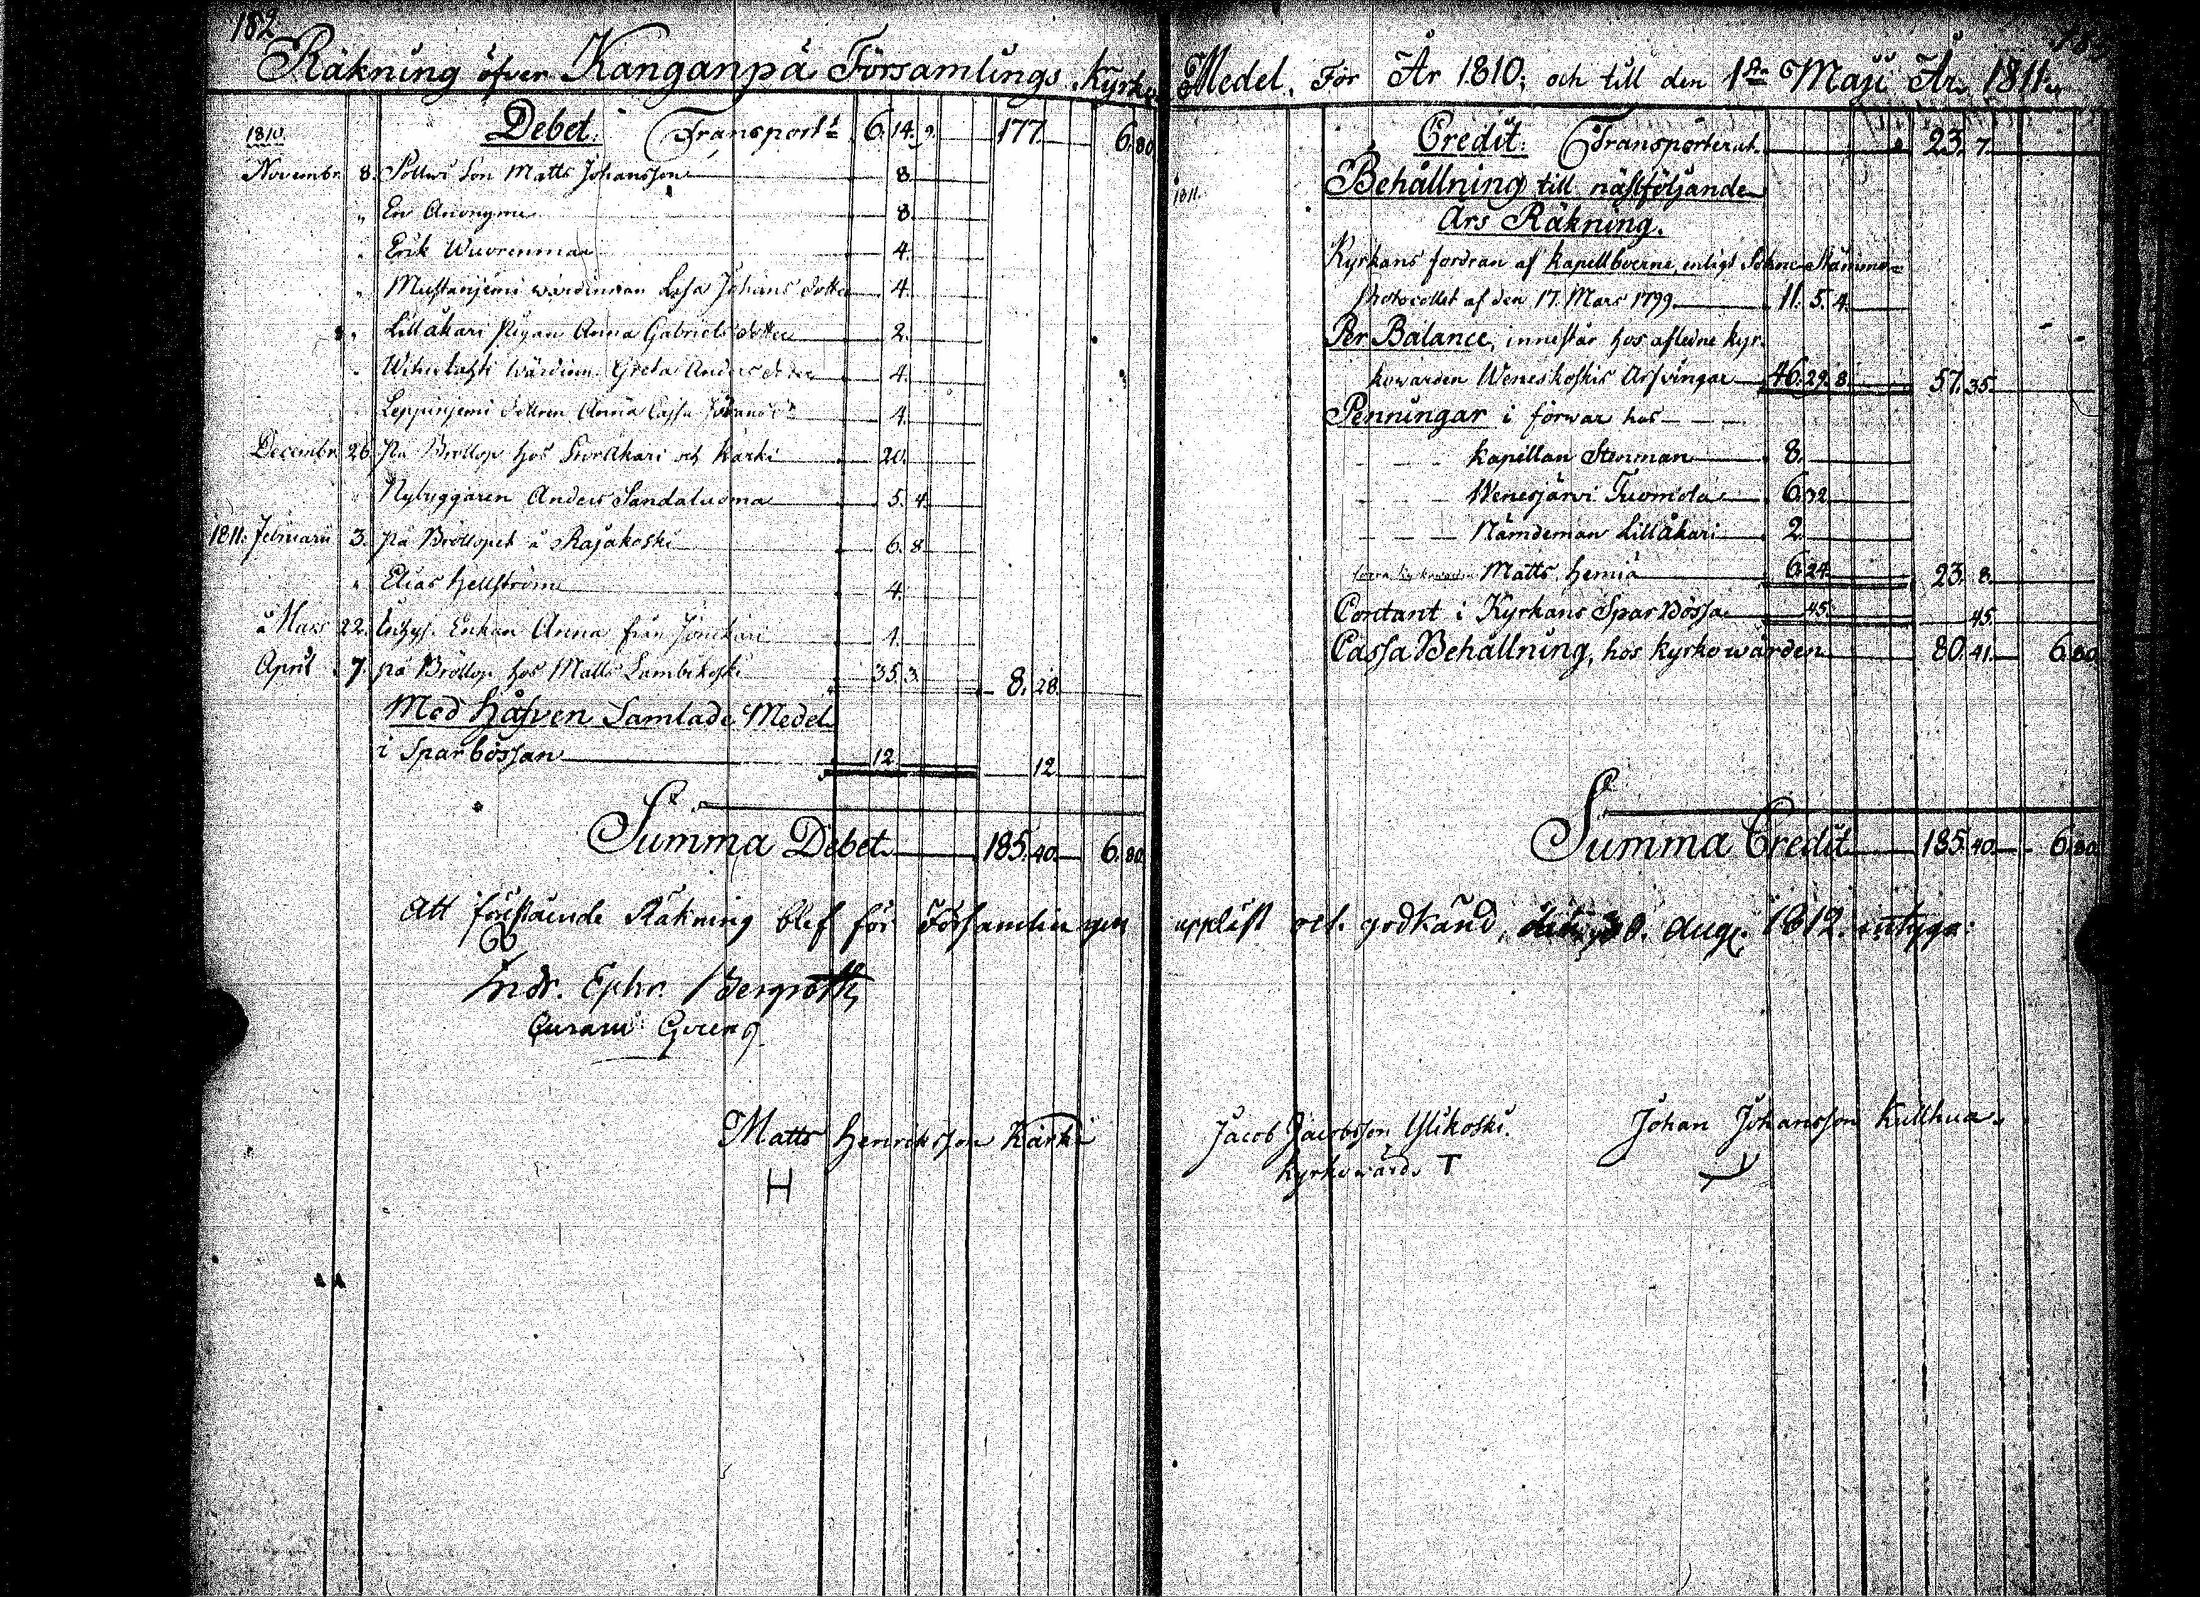 182
Räkning öfver Kanganpä Församlings Kyrko
1810. Debet. Transport 6. 14. 9. 177. 6. 80
Novembr. 8. Son Matts Johansson 8.
" En Anonyme 8.
" Erik Wuorenmaa 4.
" Mustanjemi wärdinnan Lisa Johans dotter 4.
" Lillåkari Pigan Anna Gabriels dotter 2.
" wärdinn. Greta Anders dotter 4.
Leppinjemi dottren Anna Cajsa Johans dr 4.
Decembr. 26. På Bröllop hos Storåkari och Kärki 20.
" Nybyggaren Anders Sandaluoma 5. 4.
1811. Februarii 3. på Bröllopet å Rajakoski 6. 8
" Elias Hellström 4.
å Mars 22. Enkan Anna från 1.
April 7. på Bröllop hos Matts Lambikoski 35. 3. 8. 28.
Med Håfven Samlade Medel
i Sparbössan 12. 12
Summa Debet 185. 40. 6. 80
Att förestående Räkning blef för Församlingen
Andr. Ephr. Bergroth
Curam Gerens
Matts Henricksson Kärki
H
Medel. För År 1810; och till den 1sta Maji År 1811.
Credit: Transporterat. 23. 7.
1811. Behållning till nästföljande
Års Räkning.
Kyrkans fordran af Kapellboerne, enligt Sokne-Stämmo-
Protocollet af den 17. Mars 1799 11. 5. 4.
Per Balance, innestår hos afledne Kyr-
kowärden Weneskoskis Arfvingar 46. 29. 8. 57. 35.
Penningar i förwar hos
Kapellan Stenman 8.
Wenesjärvi Tuomola 6. 32
Nämdeman Lillåkari 2.
Matts Hemiä 6. 24 23. 8.
Contant i Kyrkans SparBössa 45. 45.
Cassa Behållning, hos Kyrkowärden 80. 41. 6. 80
Summa Credit 185. 40. 6. 80
uppläst och godkänd, den 30. Aug. 1812. intygar:
Jacob Jacobsson Ylikoski.
Kyrkowärd. T
Johan Johansson Kullhua.